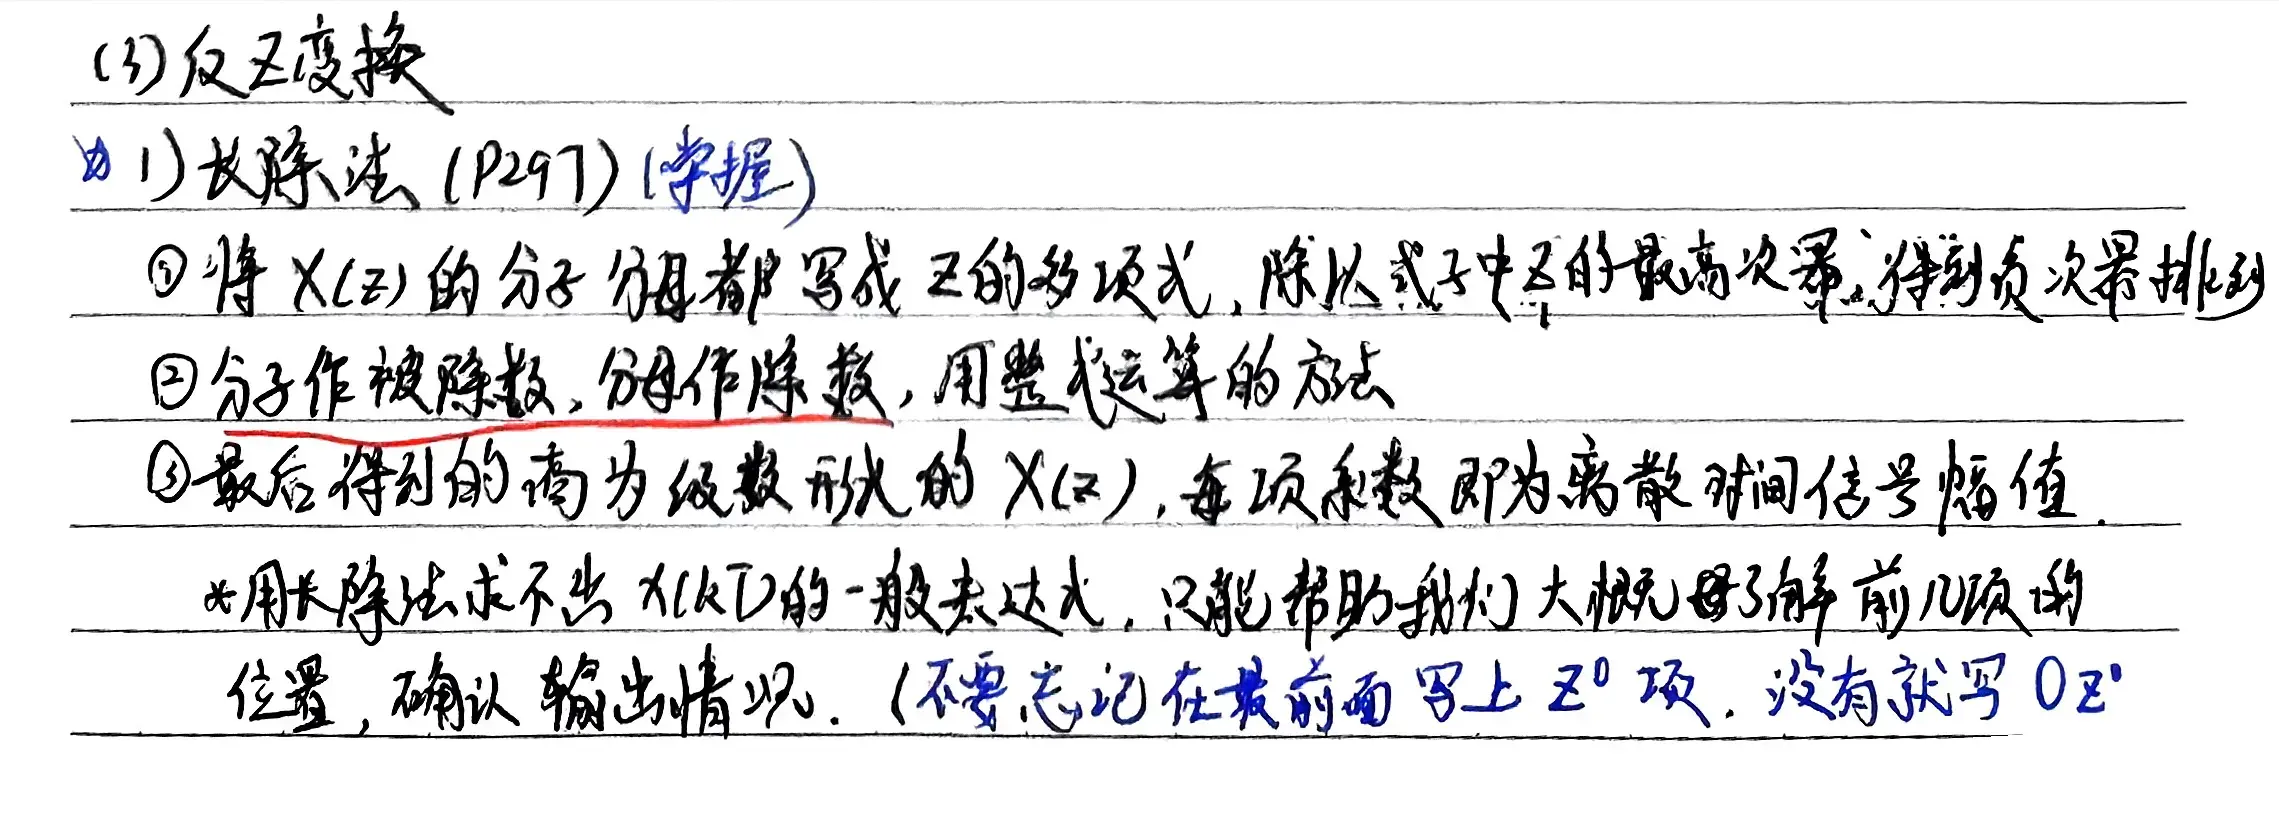 (3)反Z变换
1)长除法(P297)(掌握)
①将X(z)的分子分母都写成Z的多项式,除以式子中Z的最高次幂,得到负次幂排列
②分子作被除数,分母作除数,用整式运算的方法
③最后得到的商为级数形式的X(z),每项系数即为离散时间信号幅值.
*用长除法求不出X(kT)的一般表达式,只能帮助我们大概了解前几项的
位置,确认输出情况.(不要忘记在最前面写上Z⁰项.没有就写0Z⁰